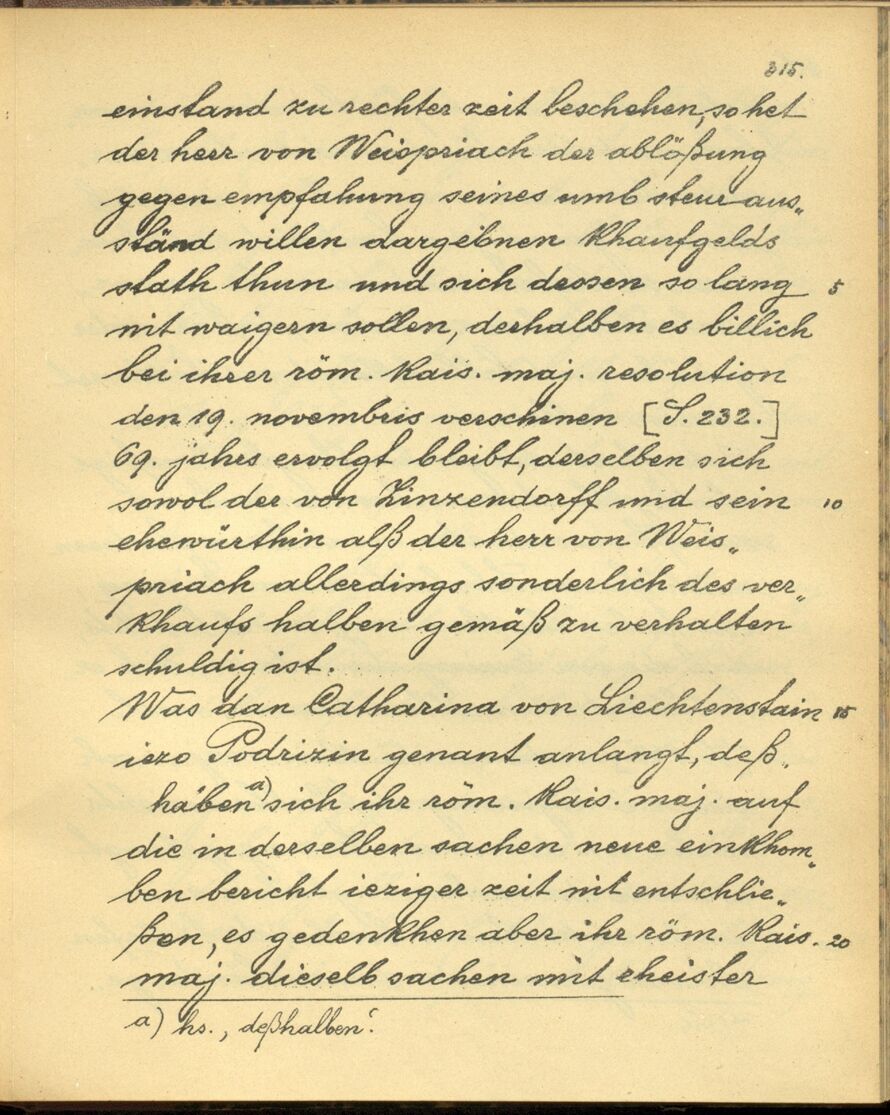 315.
einstand zu rechter zeit beschehen, so het
der herr von Weispriach der ablößung
gegen empfahung seines umb steur aus„
ständ willen dargebnen khaufgelds
stath thun und sich dessen so lang 5
nit waigern sollen, deshalben es billich
bei ihrer röm. kais. maj. resolution
den 19. novembris verschinen [S. 232.]
69. jahrs ervolgt bleibt, derselben sich
sowol der von Zinzendorff und sein 10
ehewürthin alß der herr von Weis„
priach allerdings sonderlich des ver„
khaufs halben gemäß zu verhalten
schuldig ist.
Was dan Catharina von Liechtenstain 15
iezo Podrizin genant anlangt, deß„
haben a) sich ihr röm. kais. maj. auf
die in derselben sachen neue einkhom„
ben bericht ieziger zeit nit entschlie„
ßen, es gedenkhen aber ihr röm. kais. 20
maj. dieselb sachen mit eheister
a) hs. „deßhalben“.